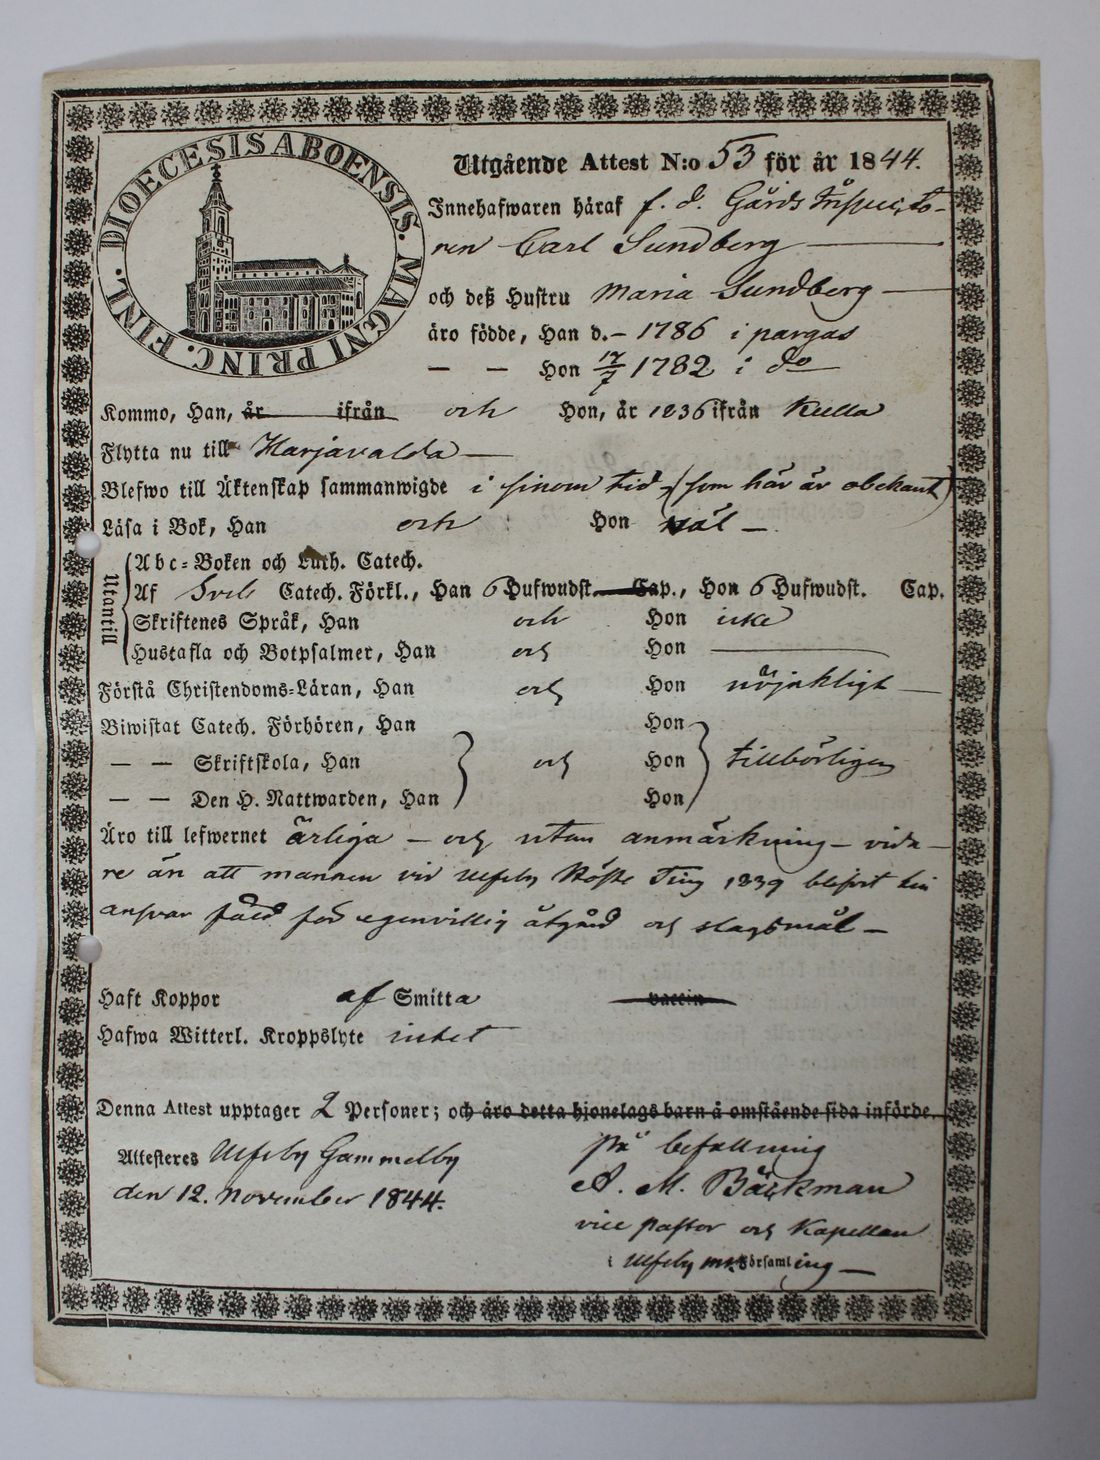 DIOECESIS ABOENSIS. MAGNI PRINC. FINL.
Utgående Attest N:o 53 för år 1844.
Innehafwaren häraf f. d. Gårds Inspecto-
ren Carl Sundberg
och deß Hustru Maria Sundberg
äro födde, Han d. – 1786 i pargas
— — Hon 17/7 1782 i do
Kommo, Han, år ifrån och Hon, år 1836 ifrån Kulla
Flytta nu till Harjavalda
Blefwo till Äktenskap sammanwigde i sinom tid, (som här är obekant)
Läsa i Bok, Han och Hon väl –
Utantill
Abc-Boken och Luth. Catech.
Af Sveb Catech. Förkl., Han 6 Hufwudst. Cap., Hon 6 Hufwudst. Cap.
Skriftenes Språk, Han och Hon icke
Hustafla och Botpsalmer, Han och Hon
Förstå Christendoms-Läran, Han och Hon nöjakligt
Biwistat Catech. Förhören, Han Hon
— — Skriftskola, Han och Hon tillbörligen
— — Den H. Nattwarden, Han Hon
Äro till lefwernet ärliga – och utan anmärkning – vida-
re än att mannen vid Ulfsby Höste Ting 1839 blifvit till
ansvar fäld för egenvillig åtgärd och slagsmål –
Haft Koppor af Smitta vaccin
Hafwa Witterl. Kroppslyte intet
Denna Attest upptager 2 Personer; och äro detta hjonelags barn å omstående sida införde.
Attesteres Ulfsby Gammelby
den 12. November 1844.
på befallning
A. M. Bäckman
vice pastor och Kapellan
i Ulfsby församling